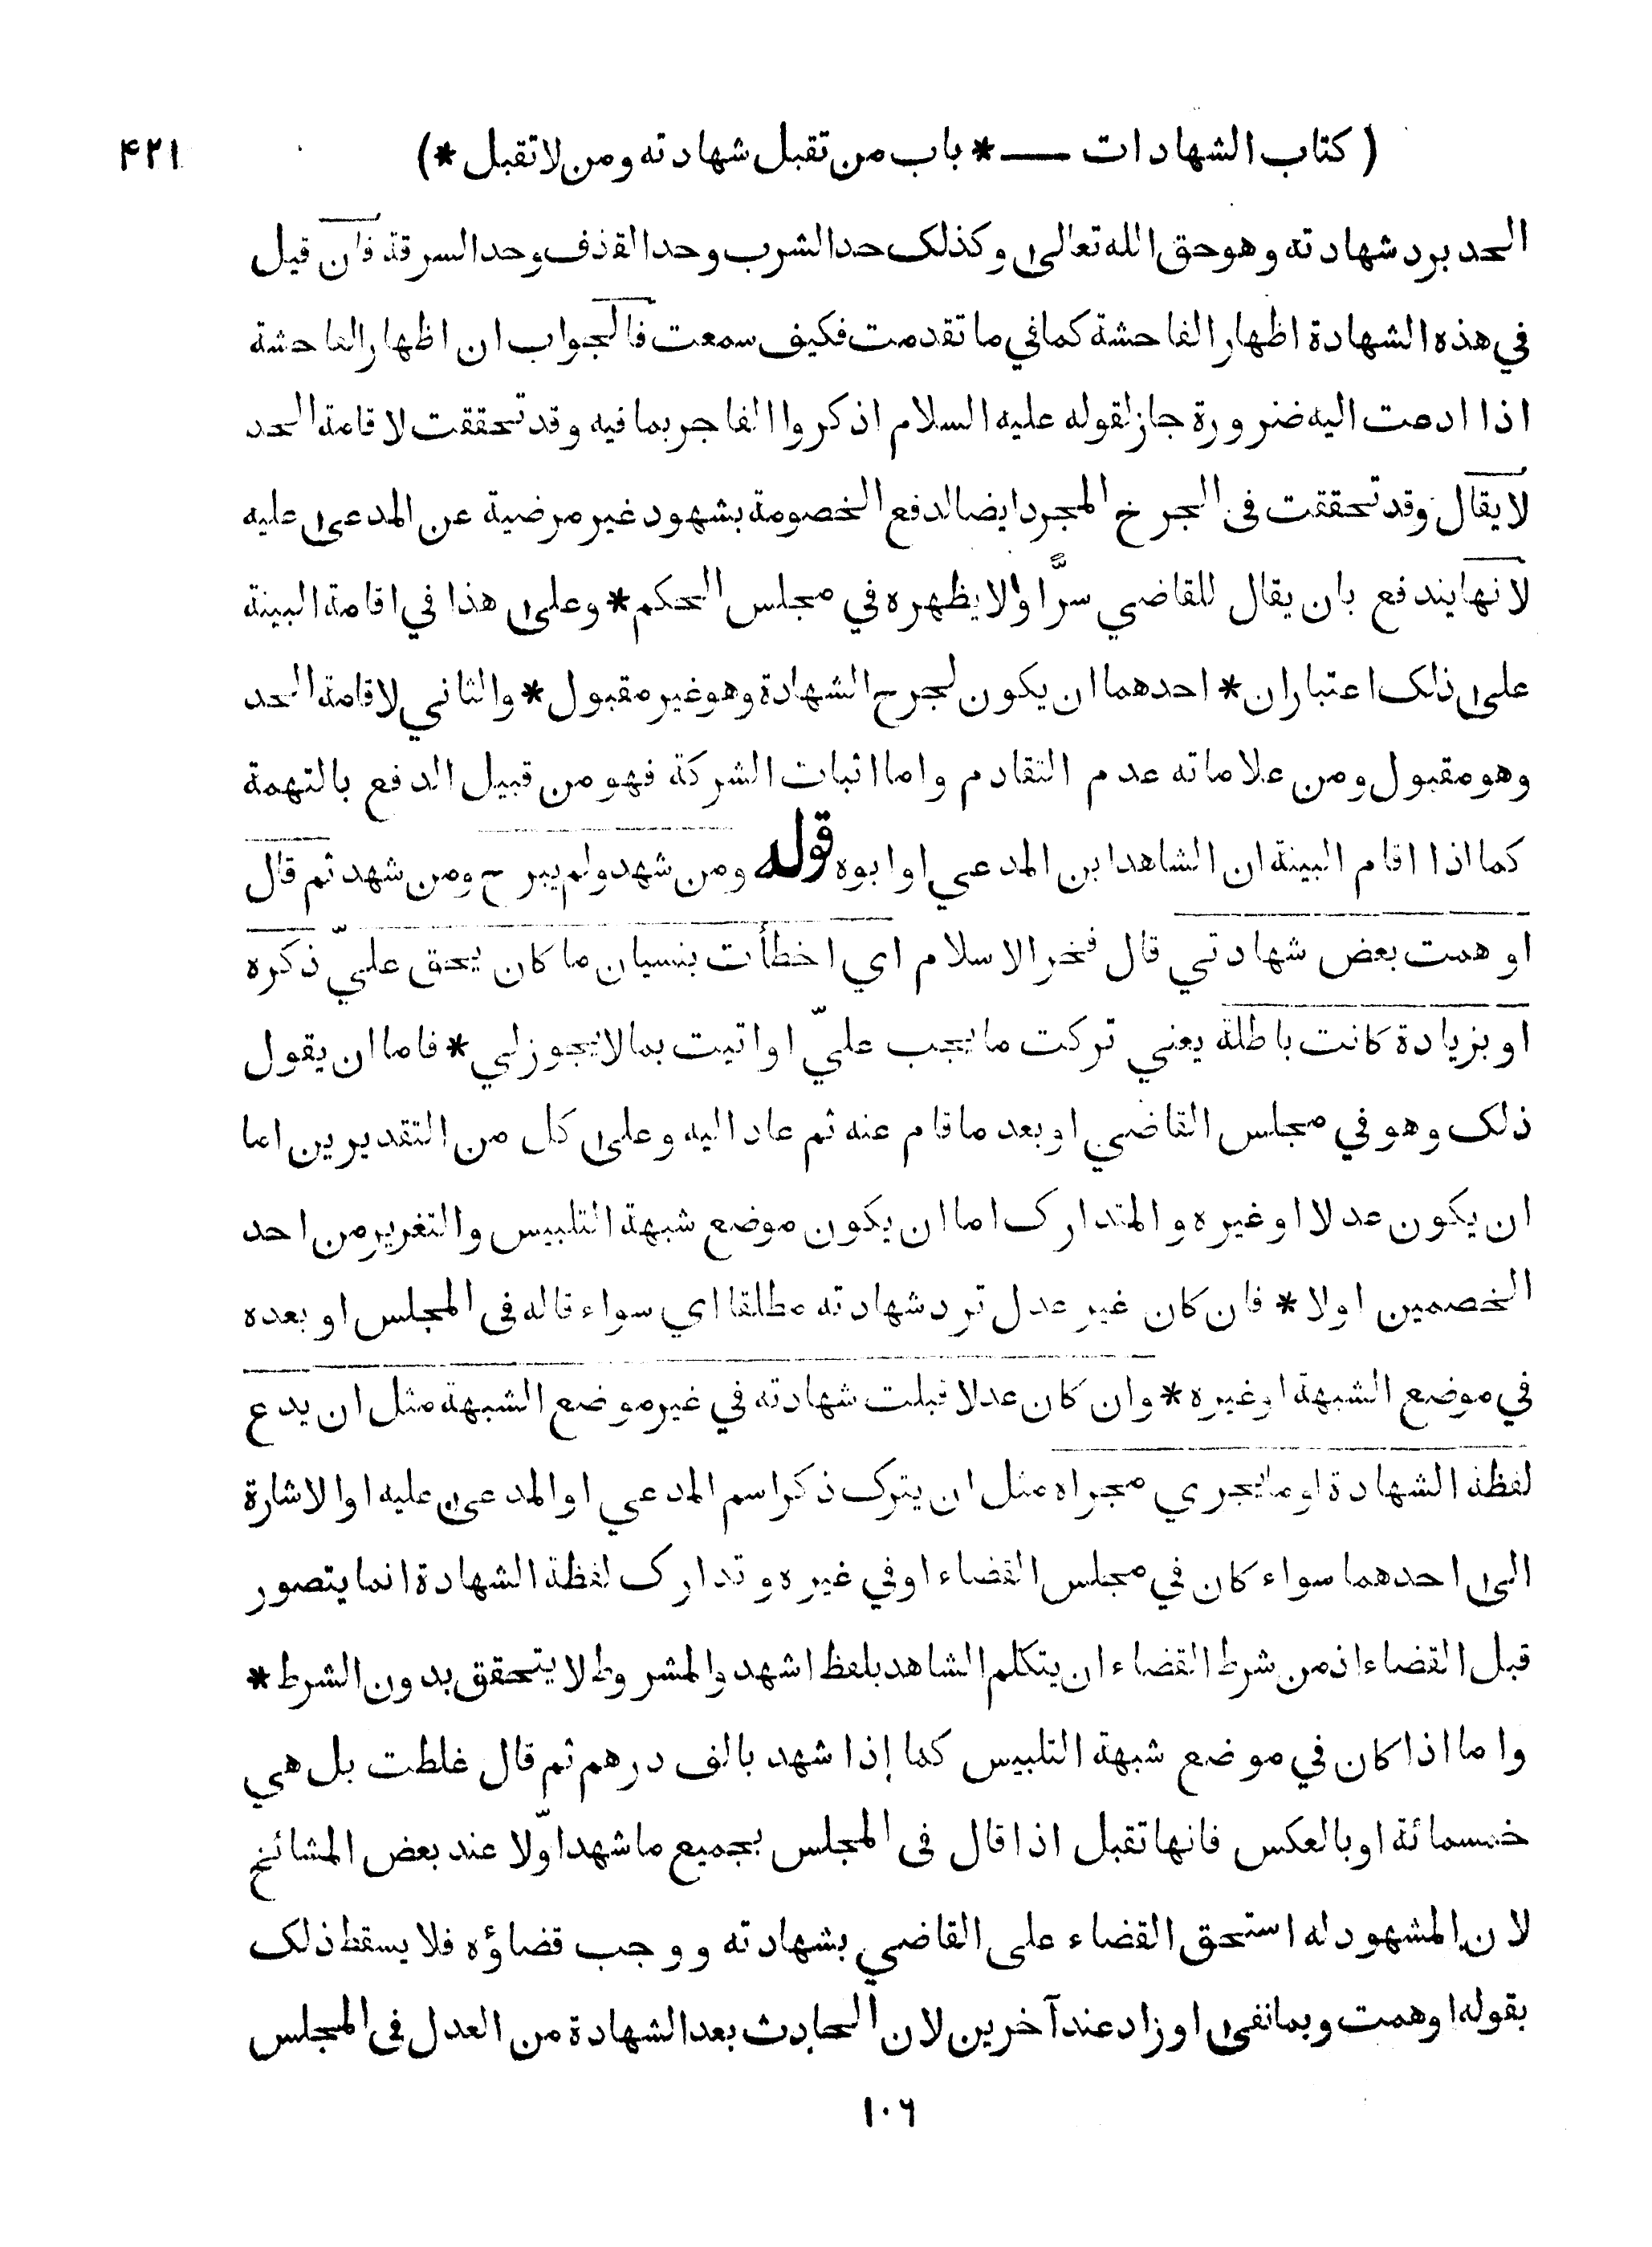 ( كتاب الشهادات — * باب من تقبل شهادته ومن لا تقبل * ) ۴۲۱
الحد برد شهادته وهو حق الله تعالى وكذلك حد الشرب وحد القذف وحد السرقة فان قيل
في هذه الشهادة اظهار الفاحشة كما في ما تقدمت فكيف سمعت فالجواب ان اظهار الفاحشة
اذا ادعت اليه ضرورة جاز لقوله عليه السلام اذكروا الفاجر بما فيه وقد تحققت لاقامة الحد
لا يقال وقد تحققت في الجرح المجرد ايضا لدفع الخصومة بشهود غير مرضية عن المدعى عليه
لانها يندفع بان يقال للقاضي سرًّا ولا يظهره في مجلس الحكم * وعلى هذا في اقامة البينة
على ذلك اعتباران * احدهما ان يكون لجرح الشهادة وهو غير مقبول * والثاني لاقامة الحد
وهو مقبول ومن علاماته عدم التقادم واما اثبات الشركة فهو من قبيل الدفع بالتهمة
كما اذا اقام البينة ان الشاهد ابن المدعي او ابوه قوله ومن شهد ولم يبرح ومن شهد ثم قال
اوهمت بعض شهادتي قال فخر الاسلام اي اخطأت بنسيان ما كان يحق عليّ ذكره
او بزيادة كانت باطلة يعني تركت ما يجب عليّ او اتيت بما لا يجوز لي * فاما ان يقول
ذلك وهو في مجلس القاضي او بعد ما قام عنه ثم عاد اليه وعلى كل من التقديرين اما
ان يكون عدلا او غيره و المتدارك اما ان يكون موضع شبهة التلبيس والتغرير من احد
الخصمين اولا * فان كان غير عدل ترد شهادته مطلقا اي سواء قاله في المجلس او بعده
في موضع الشبهة او غيره * وان كان عدلا قبلت شهادته في غير موضع الشبهة مثل ان يدع
لفظة الشهادة او ما يجري مجراه مثل ان يترك ذكر اسم المدعي او المدعى عليه او الاشارة
الى احدهما سواء كان في مجلس القضاء او في غيره وتدارك لفظة الشهادة انما يتصور
قبل القضاء اذ من شرط القضاء ان يتكلم الشاهد بلفظ اشهد والمشروط لا يتحقق بدون الشرط *
واما اذا كان في موضع شبهة التلبيس كما إذا شهد بالف درهم ثم قال غلطت بل هي
خمسمائة او بالعكس فانها تقبل اذا قال في المجلس بجميع ما شهد اوّلا عند بعض المشائخ
لان المشهود له استحق القضاء على القاضي بشهادته ووجب قضاؤه فلا يسقط ذلك
بقوله اوهمت وبما نفى او زاد عند آخرين لان الحادث بعد الشهادة من العدل في المجلس
۱۰۶